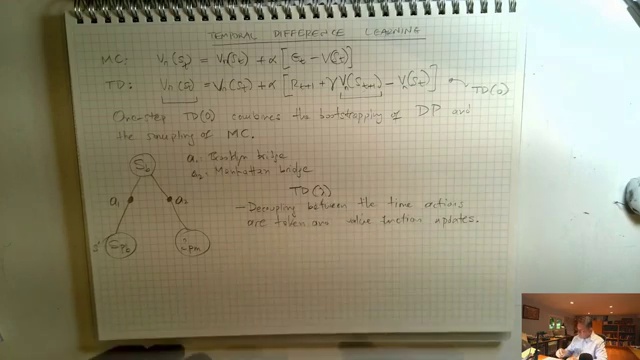 TEMPORAL DIFFERENCE LEARNING
MC: Vπ(St) = Vπ(St) + α [Gt − V(St)]
TD: Vπ(St) = Vπ(St) + α [Rt+1 + γVπ(St+1) − Vπ(St)] TD(0)
One-step TD(0) combines the bootstrapping of DP and
the sampling of MC.
S0
a1: Brooklyn bridge
a2: Manhattan bridge
a1
a2
TD(λ)
– Decoupling between the time actions
are taken and value function updates.